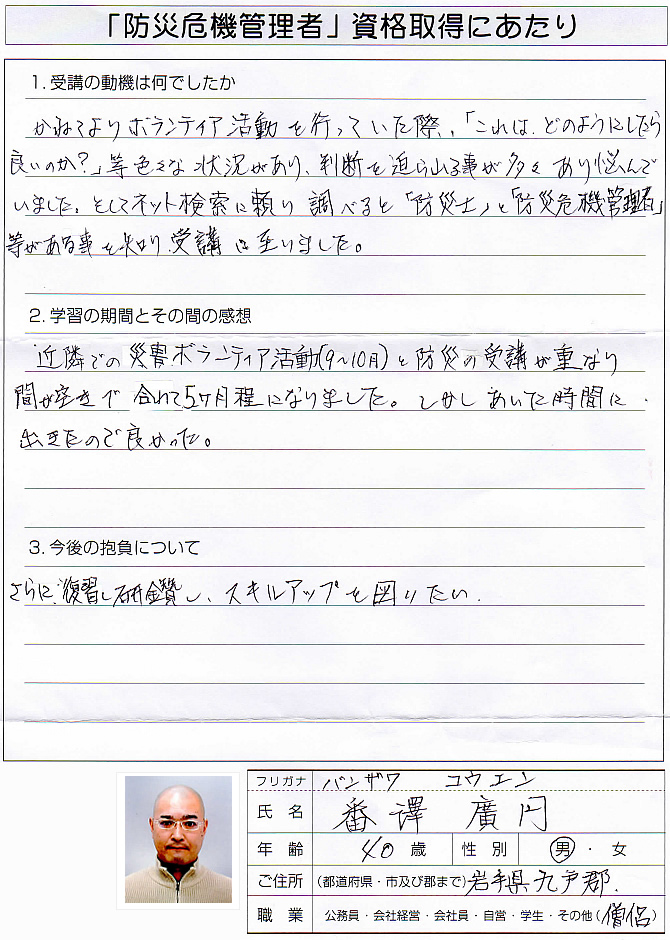 「防災危機管理者」資格取得にあたり
1. 受講の動機は何でしたか
かねてよりボランティア活動を行っていた際、「これは、どのようにしたら
良いのか?」等色々な状況があり、判断を迫られる事が多々あり悩んで
いました。そしてネット検索に頼り調べると「防災士」と「防災危機管理者」
等がある事を知り受講に至りました。
2. 学習の期間とその間の感想
近隣での災害ボランティア活動(9〜10月)と防災の受講が重なり
間が空きで合わせて5ヶ月程になりました。しかしあいた時間に
出きたので良かった。
3. 今後の抱負について
さらに復習し研鑽し、スキルアップを図りたい.
フリガナ バンザワ コウエン
氏 名 番澤 廣円
年 齢 40 歳 性 別 男・女
ご住所 (都道府県・市及び郡まで) 岩手県九戸郡.
職 業 公務員・会社経営・会社員・自営・学生・その他(僧侶)